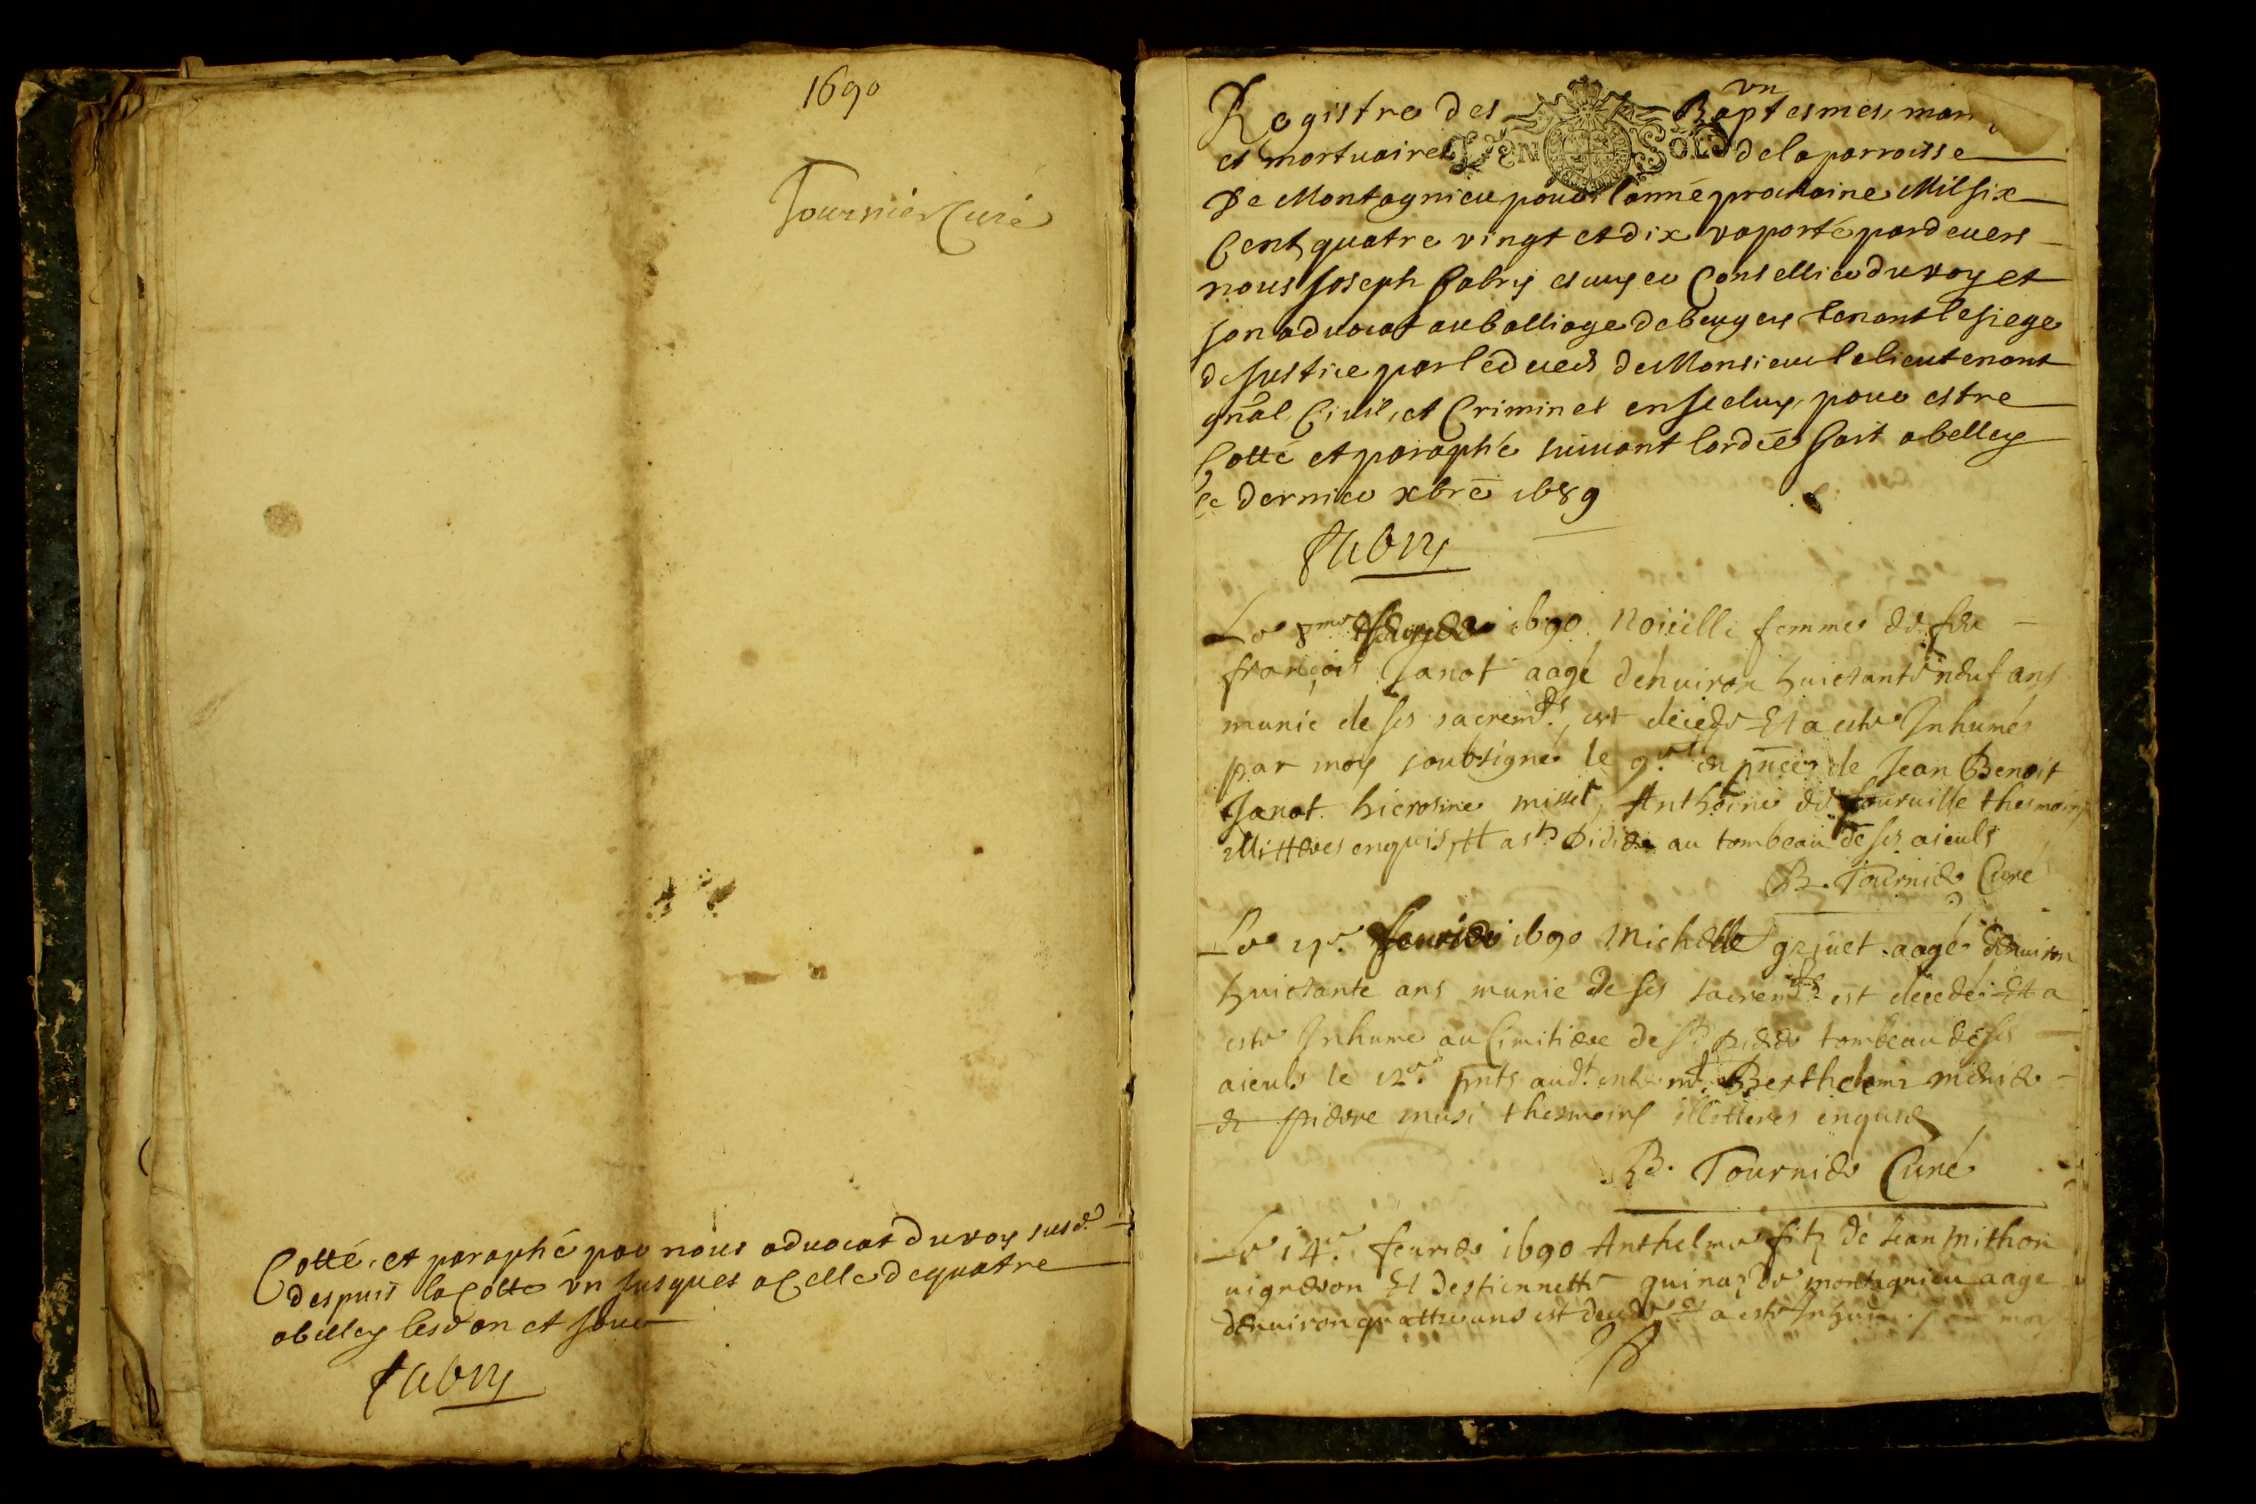 1690
Tournier Curé
Cotté, et paraphé par nous advocat du roy susd.
despuis la cotte un jusques a celle de quatre
a belley lesd an et jour
Fabry
un
Registre des Baptesmes, mari
et mortuaires de la parroisse
De Montagnieu pour l'anné prochaine Mil six
Cent quatre vingt et dix raporté pardevers
nous Joseph Fabry escuyer Consellier du roy et
son advocat au balliage de beugey tenant le siege
de Justice par le deceds de Monsieur le lieutenant
gñal Civil, et Criminel en iceluy pour estre
Cotté et paraphé suivant lordce fait a belley
le dernier xbre 1689
Fabry
Le 8me 1690 femme de feu
françois Janot aagé denuiron huictante neuf ans
munie de ses sacremts, est decedé Et a esté Inhumés
par moy soubsigné le 9e en pñce de Jean Benoit
Janot Anthoine de thesmoins
illitteres enquis, Et a st au tombeau de ses aieuls
B. Tournier Curé
Le feurier 1690 Michelle aagé denuiron
huictante ans munie de ses sacremts est decedé Et a
esté Inhumé au Cimitiere de St pierre tombeau de ses
aieuls le 12e pnts Berthelemi
& pierre thesmoins illitteres enquis
B. Tournier Curé
Le 14e feurier 1690 Anthelme fils de Jean Mithon
uigneron Et destiennette de montagnieu aage
denuiron quattre ans est decedé Et a esté Inhumé par moy